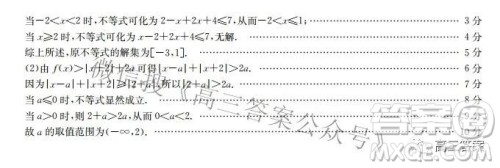 当-2<x<2时,不等式可化为2-x+2x+4≤7,从而-2<x≤1; 3分
当x≥2时,不等式可化为x-2+2x+4≤7,无解. 4分
综上所述,原不等式的解集为[-3,1]. 5分
(2)由f(x)>|x+2|+2a可得|x-a|+|x+2|>2a. 6分
因为|x-a|+|x+2|≥|2+a|,所以|2+a|>2a. 7分
当a≤0时,不等式显然成立. 8分
当a>0时,则2+a>2a,从而0<a<2.
故a的取值范围为(-∞,2).
微信搜《高三答案公众号》